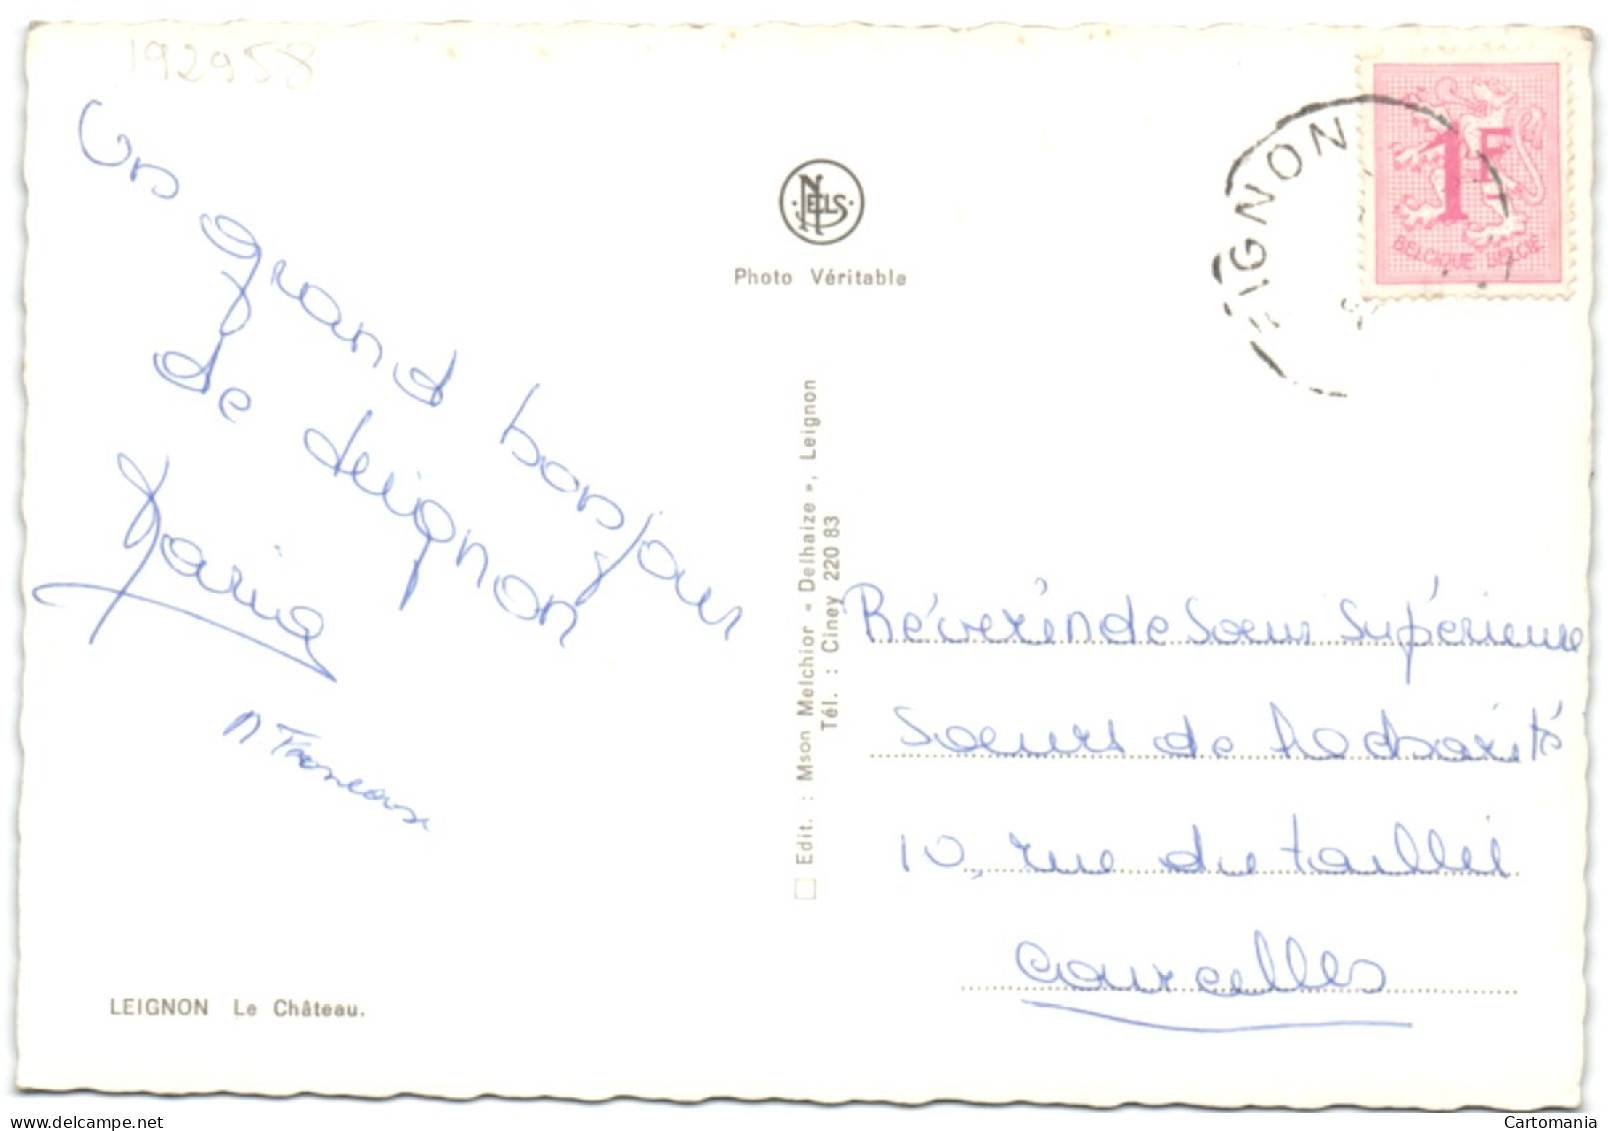 192958
Un grand bonjour
de Leignon
Marina
LEIGNON Le Château.
NELS
Photo Véritable
Edit. : Mson Melchior « Delhaize », Leignon
Tél. : Ciney 220 83
EIGNON
1F
BELGIQUE BELGIE
Révérende Soeur Supérieure
Soeurs de la charité
10, rue du taillis
Courcelles
Cartomania